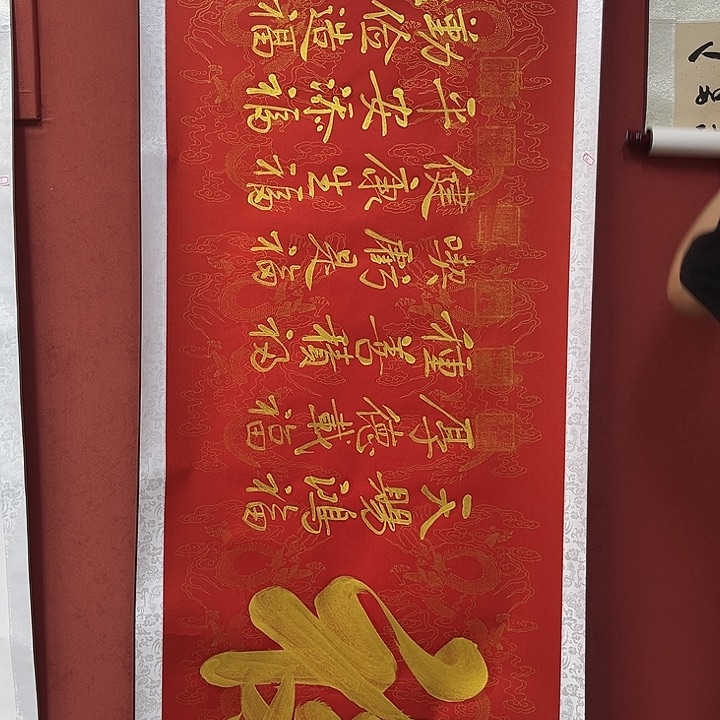 天賜鴻福
厚德載福
種善積福
喫虧是福
健康生福
平安添福
勤儉造福